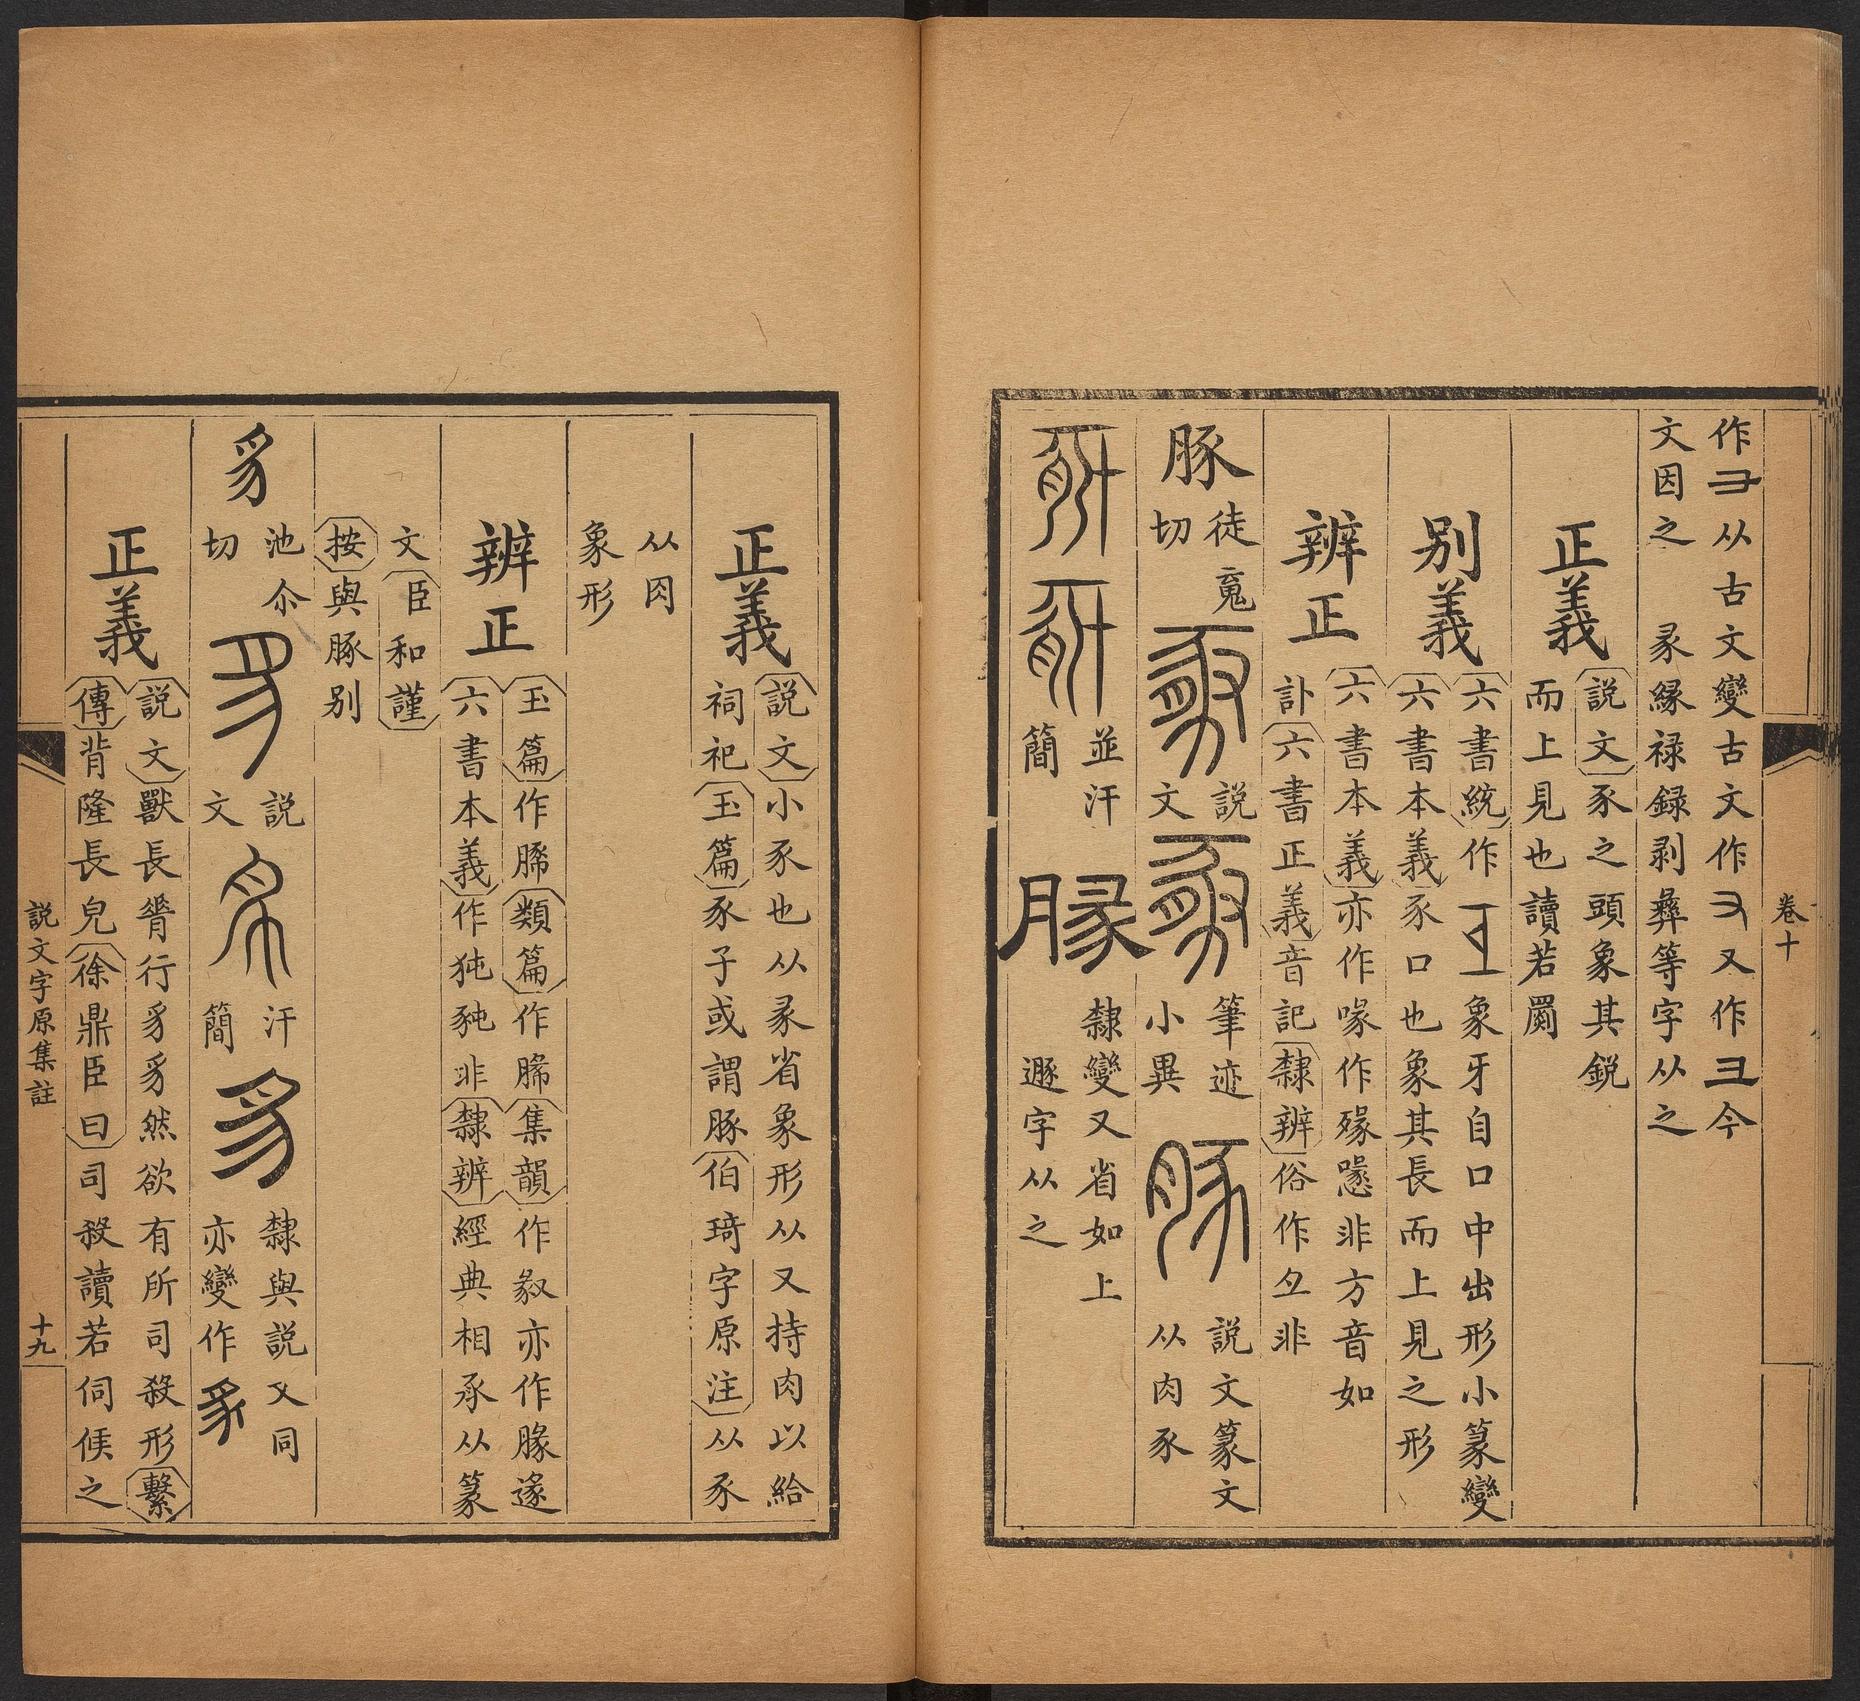 卷十
作彐从古文變古文作彐又作彐今
文因之 彖緣祿錄剥彝等字从之
正義
說文豕之頭象其銳
而上見也讀若罽
别義
六書統作 象牙自口中出形小篆變
六書本義豕口也象其長而上見之形
辨正
六書本義亦作喙作㱬㥟非方音如
訃六書正義音記隸辨俗作彑非
豚 徒魂
切
說
文
筆迹
小異
說文篆文
从肉豕
並汗
簡
隸變又省如上
遯字从之
正義
說文小豕也从彖省象形从又持肉以給
祠祀玉篇豕子或謂豚伯琦字原注从豕
从肉
象形
辨正
玉篇作豨類篇作豨集韻作㒸亦作腞遂
六書本義作㹠豘非隸辨經典相承从篆
文臣和謹
按與豚别
豸 池尒
切
說
文
汗
簡
隸與說文同
亦變作豸
正義
說文獸長脊行豸豸然欲有所司殺形繫
傳背隆長皃徐鼎臣曰司殺讀若伺候之
說文字原集註
十九